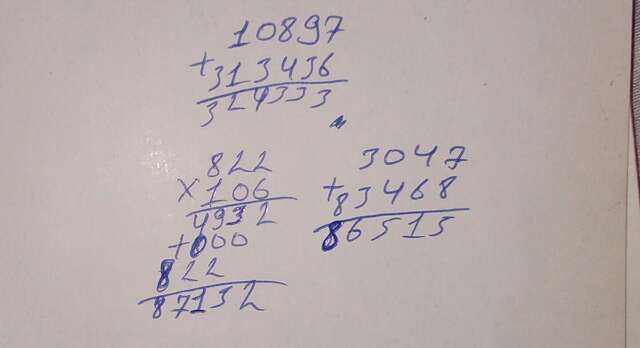 10897
+313436
324333
822
×106
4932
+000
822
87132
3047
+83468
86515